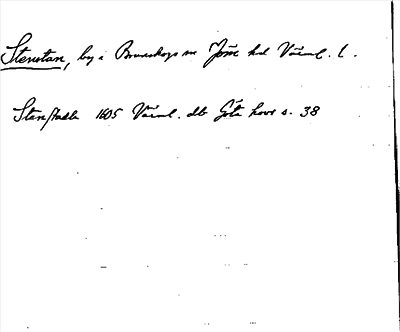 Stenstan, by i Brunskogs sn Jösse hd Värml. l.
Stenstadh 1605 Värml. db Göta hovr s. 38